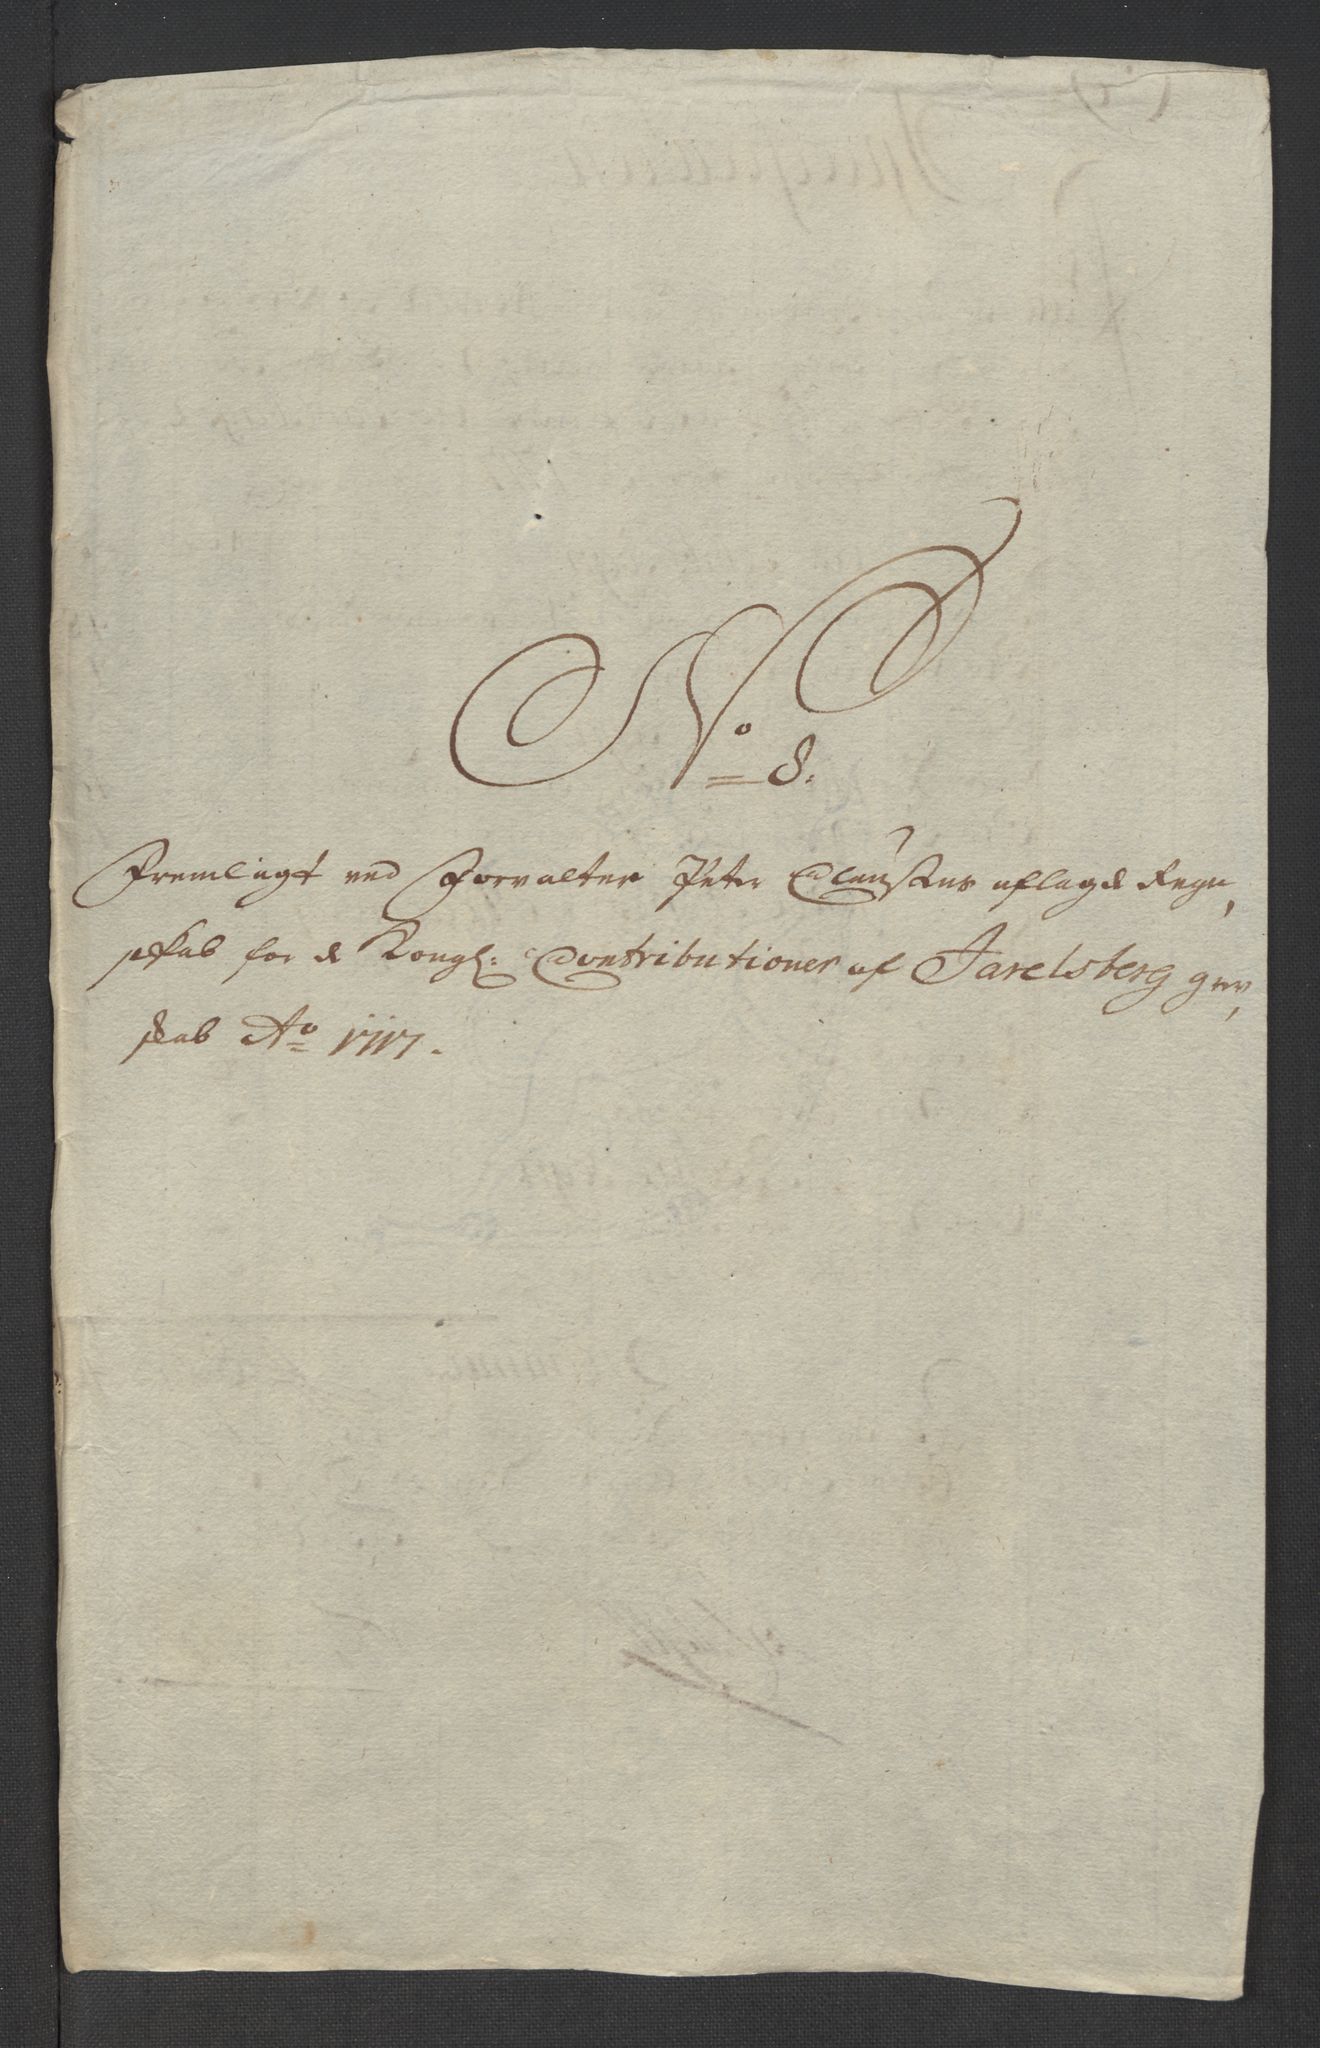 No 8.
Fremlagt ved Forvalter Peter Clausens aflagde Regn,
skab for de Kongl: Contributioner af Jarelsberg grev,
skab Ao 1717.